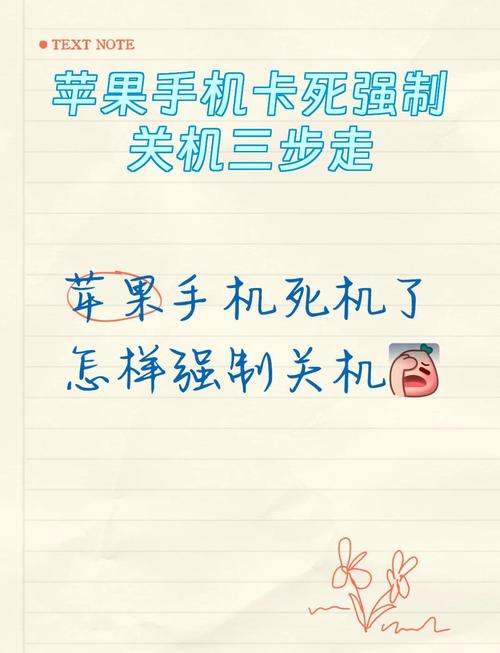 TEXT NOTE
苹果手机卡死强制
关机三步走
苹果手机死机了
怎样强制关机